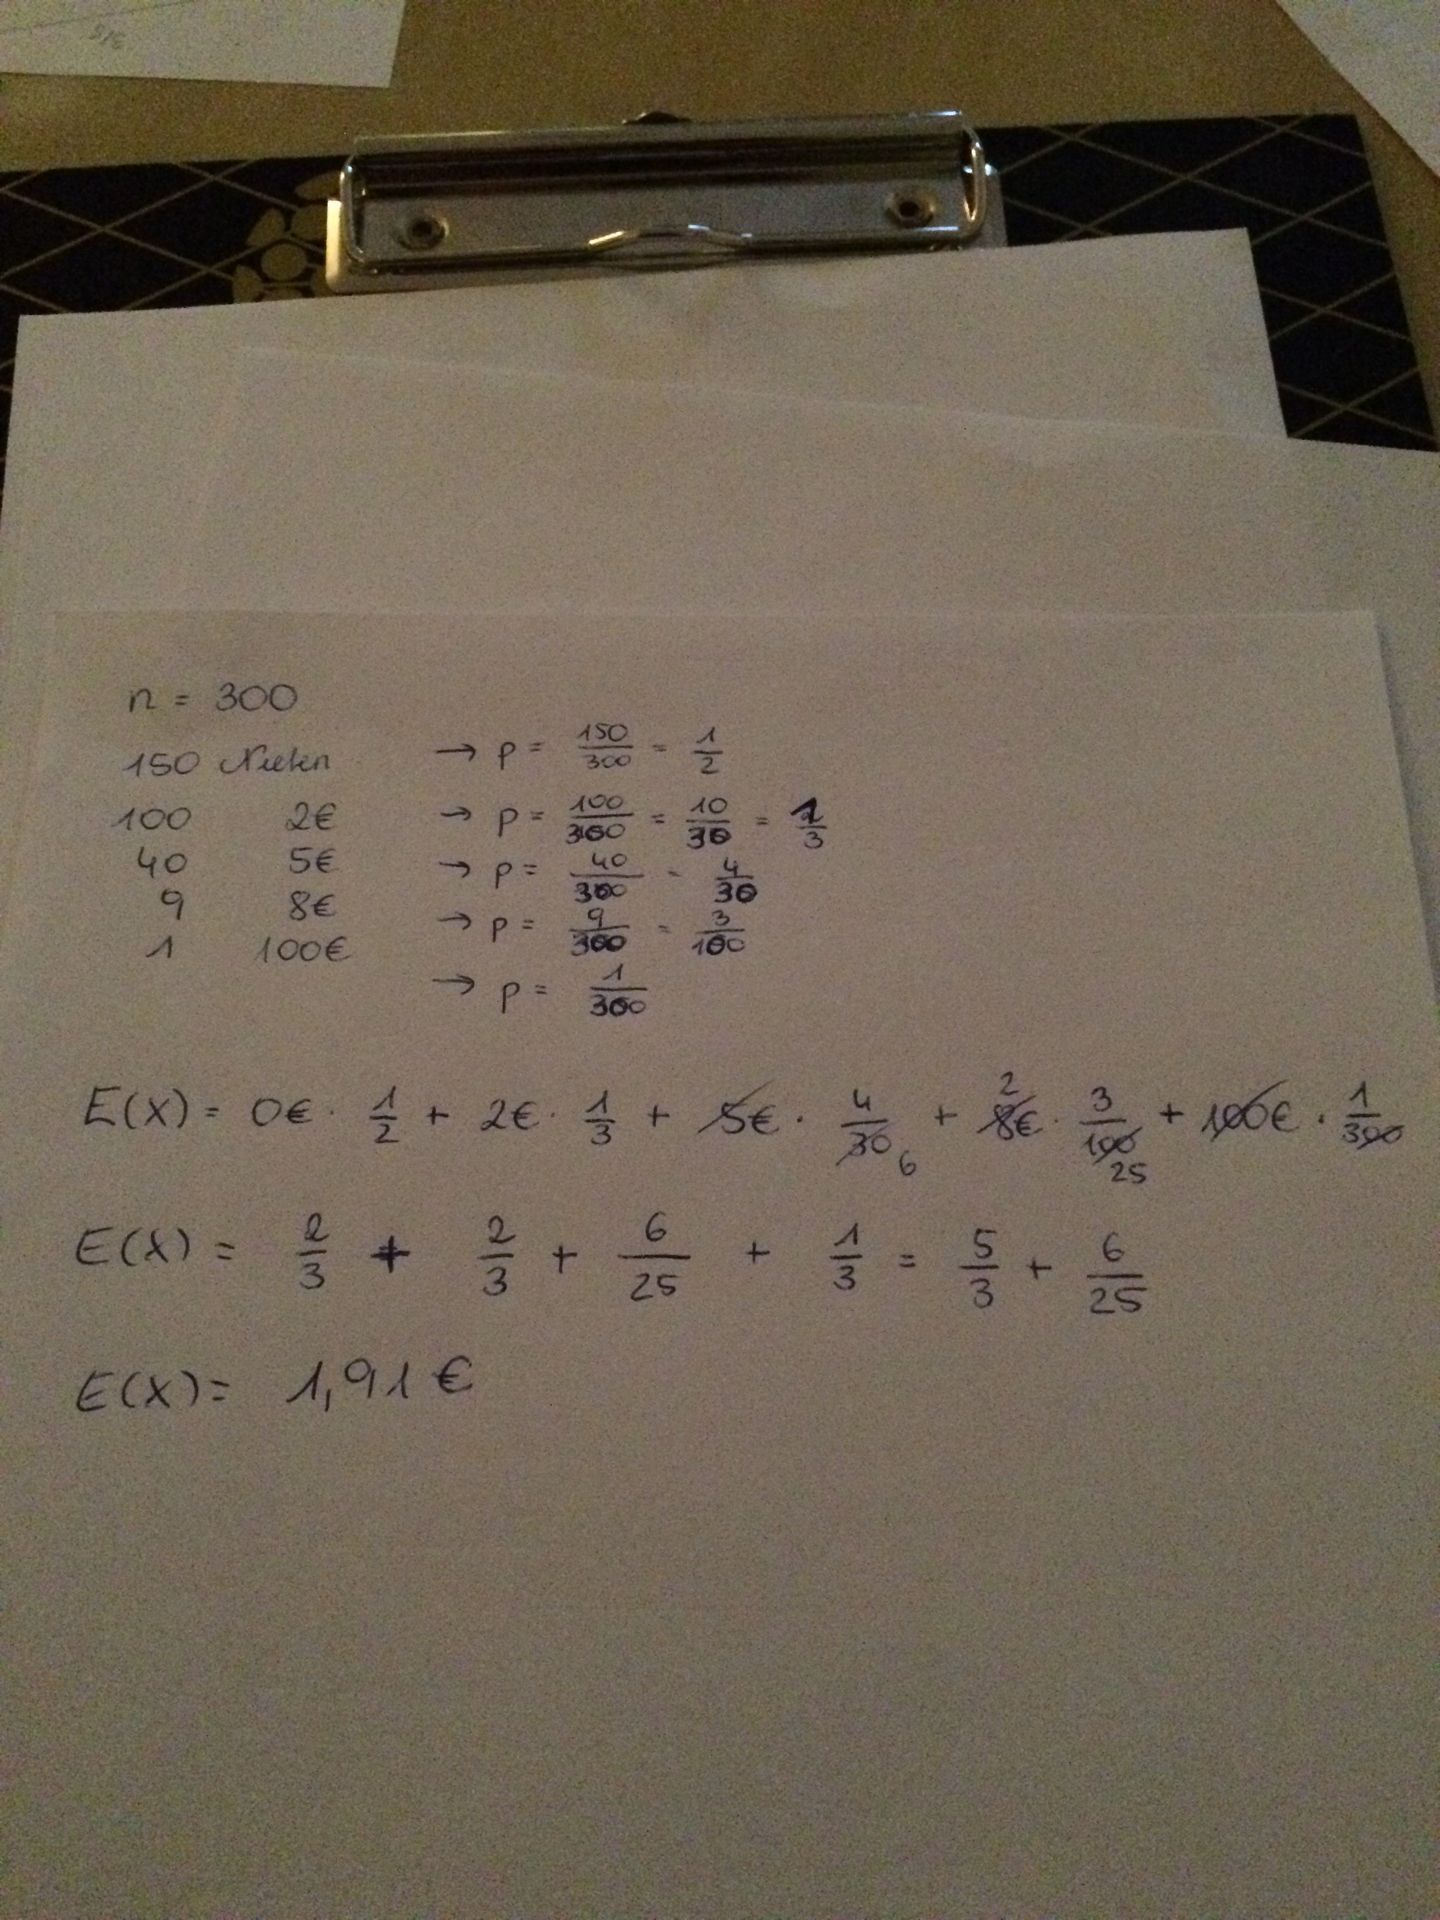 3/5
n = 300
150 Nieten → p = 150/300 = 1/2
100 2€ → p = 100/300 = 10/30 = 1/3
40 5€ → p = 40/300 = 4/30
9 8€ → p = 9/300 = 3/100
1 100€ → p = 1/300
E(X) = 0€ · 1/2 + 2€ · 1/3 + 5€ · 4/30 6 + 2 8€ · 3/100 25 + 100€ · 1/300
E(X) = 2/3 + 2/3 + 6/25 + 1/3 = 5/3 + 6/25
E(X) = 1,91 €